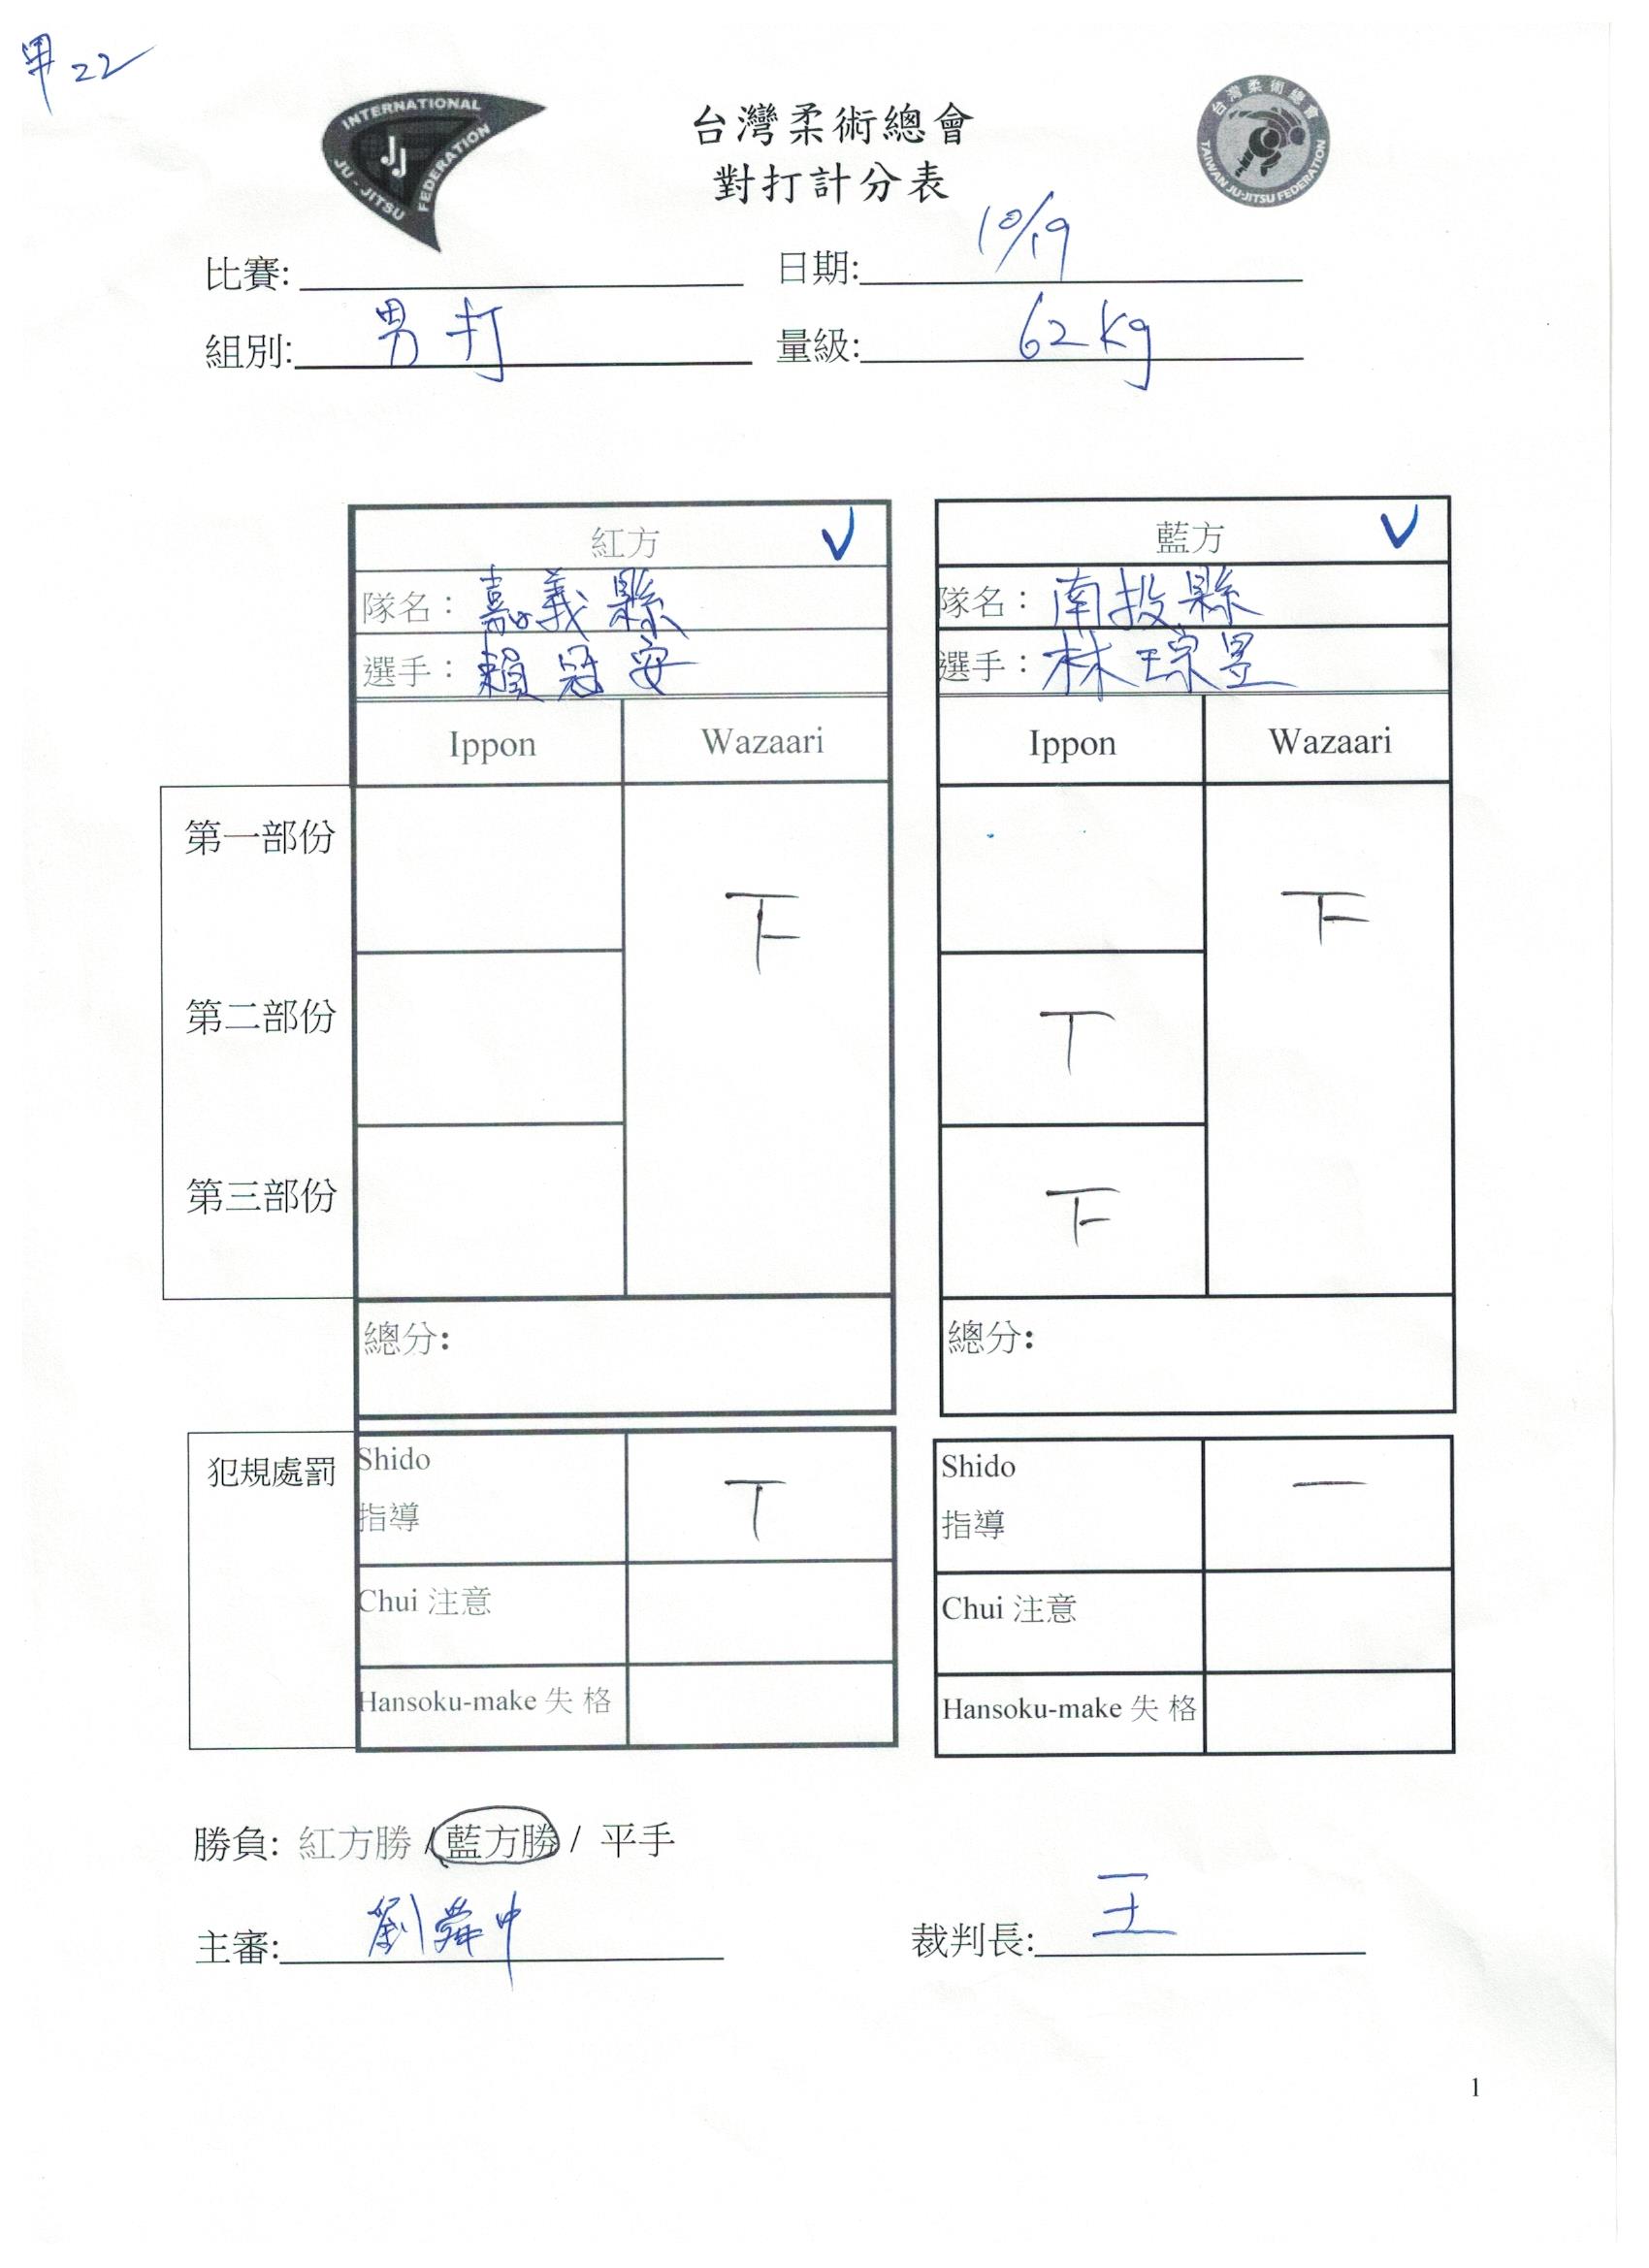 甲22
INTERNATIONAL
JU-JITSU FEDERATION
JJ
台灣柔術總會
TAIWAN JU-JITSU FEDERATION
台灣柔術總會
對打計分表
比賽: 日期: 10/19
組別: 男打 量級: 62kg
紅方 V 藍方 V
隊名: 嘉義縣 隊名: 南投縣
選手: 賴冠安 選手: 林琮昱
Ippon Wazaari Ippon Wazaari
第一部份
第二部份 T
第三部份
總分: 總分:
犯規處罰
Shido T Shido 一
指導 指導
Chui 注意 Chui 注意
Hansoku-make 失 格 Hansoku-make 失 格
勝負: 紅方勝 / 藍方勝 / 平手
主審: 劉舜中 裁判長: 王
1